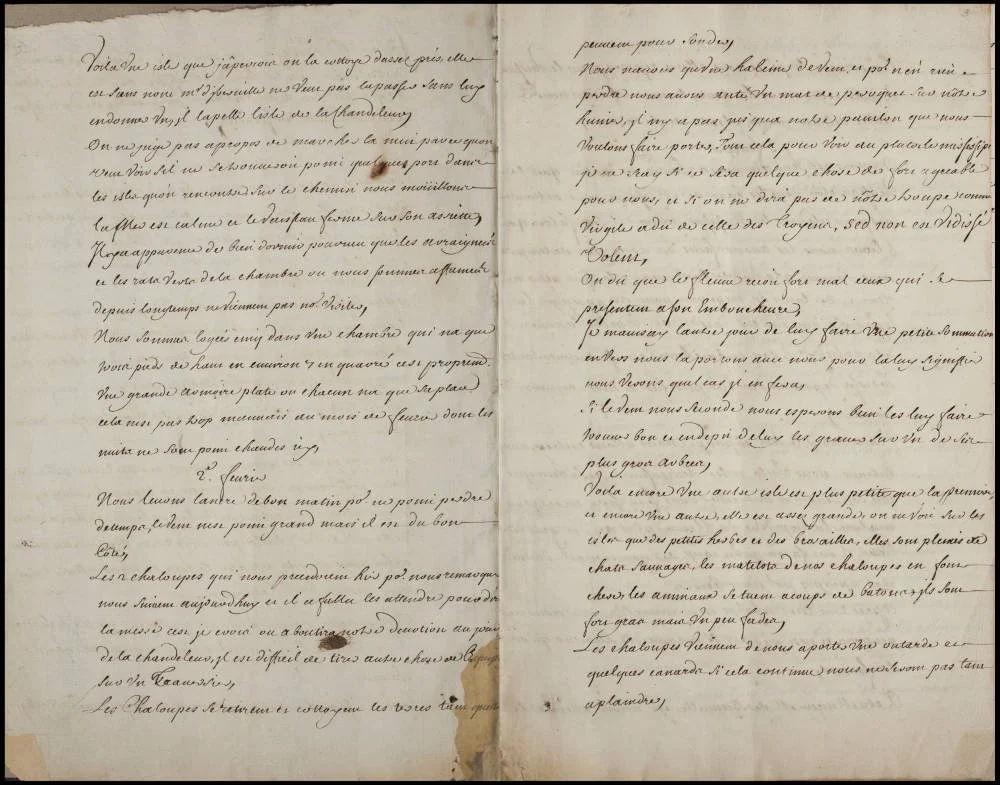 Voila une isle que j'aperçois on la cottoye dassez prés, elle
est sans nom mr d'iberville ne veut pas la passer sans luy
en donner un, il lapelle lisle de la Chandeleur,
On ne juge pas apropos de marcher la nuit parce quon
veut voir sil ne se trouveroit point quelque port dans
les isles qu'on rencontre sur le chemin nous moüillons
la Mer est calme et le vaisseau ferme sur son assiette,
Il y a apparence de bien dormir pourveu que les
et les rats de la chambre ou nous sommes affamez
depuis longtemps ne viennent pas nos. Visiter,
Nous sommes logées cinq dans une chambre qui na que
trois pieds de haut en environ 7 en quarré cest proprem.
Une grande armoire plate ou chacun na que sa place
cela nest pas trop mauvais au mois de fevrier dont les
nuits ne sont point chaudes icy,
2e. fevrier
Nous levons lancre de bon matin po. ne point perdre
de temps, le vent nest point grand mais il est du bon
Côté,
Les 2 chaloupes qui nous precedoient hier po. nous remorquer
nous suivent aujourdhuy et il a fallu les attendre pour dire
la messe cest je crois ou aboutira notre devotion au jour
de la chandeleur, il est difficil de tirer autre chose de
sur un
Les Chaloupes se retirent et cottoyent les terres tant quelles
peuvent pour sonder,
Nous navons qu'une haleine de vent, et por. n'en rien
perdre nous avons anté un mat de peroquet sur nôtre
hunier, il ny a pas jusqua notre pavillon que nous
voulons faire porter, Tout cela pour voir au plutot le missisipi
je ne sçay si ce sera quelque chose de fort agreable
pour nous, et si on ne dira pas de nôtre troupe comme
Virgile a dit de celle des Troyens, Sed non et Vidisse
Volent,
On dit que le fleuve reçoit fort mal ceux qui se
presentent a son Emboucheure,
Je mavisay lautre jour de luy faire une petite sommation
en vers nous la portons avec nous pour la luy signiffier
nous verons quel cas jl en fera,
Si le vent nous seconde nous esperons bien les luy faire
trouver bon et en depit de luy les graver sur un de ses
plus gros arbres,
Voila encore une autre isle et plus petite que la premiere
et encore une autre, elle est assez grande, on ne voit sur les
isles que des petites herbes et des brosailles, elles sont pleines de
chats sauvages, les matelots de nos chaloupes en font
chere, les animaux se tuent a coups de batons, jls sont
fort gras mais un peu fades,
Les chaloupes viennent de nous aporter une outarde et
quelques canards si cela continue nous ne serons pas tant
a plaindre,